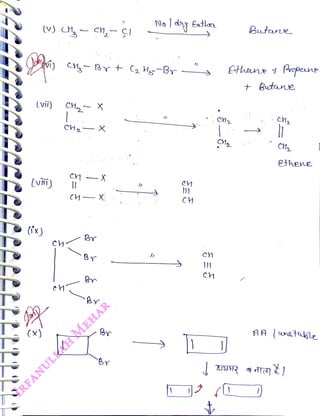 (v) CH3 - CH2 - Cl Na / dry Ether Butane
(vi) CH3 - Br + C2H5-Br Ethane & Propane
+ Butane
(vii) CH2 - X " CH2 CH2
CH2 - X CH2 CH2
Ethene
(viii) CH - X " CH
CH - X CH
(ix) CH Br " CH
Br
CH Br CH
Br
(x) Br AA / unstable
Br
डायमर बनाता है।
IRFANULLAH MEHAR